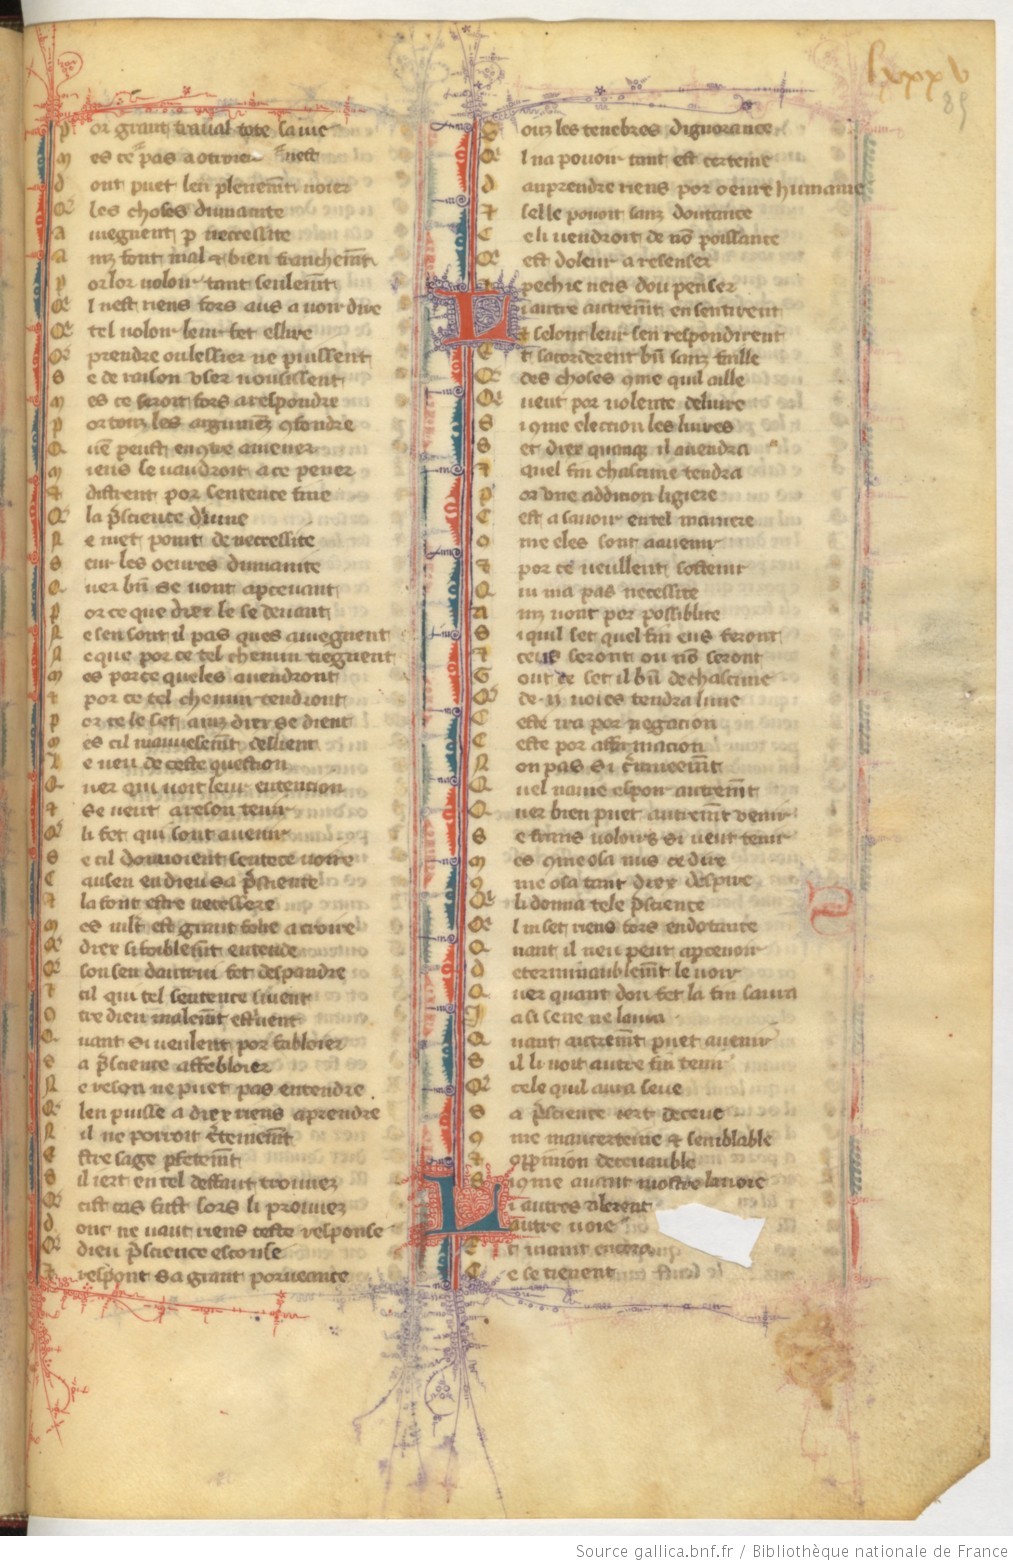 lxxxv
85
Por grant travail tote sa vie
Mes ce pas a otroier nest
Dont puet len plenemt noier
Qe les choses dumanite
Aviegnent p necessite
Ainz font mal & bien franchemt
Por lor voloir tant seulemt
Qe l nest riens fors aus a voir dire
Qe tel voloir leur fet eslire
Qe prendre ou lessier ne puissent
Se de raison user vousissent
Mes ce seroit fors a respondre
Por touz les argumez 9fondre
Qe
Mens le vaudroit a ce pener
& distrent por sentence fine
Qe la pscience divine
Ne met point de necessite
Seur les oevres dumanite
Quer bn se vont apcevant
Por ce que diex le set devant
Ne sen sont il pas ques aviegnent
Ne que por ce tel chemin tiegnent
Mes por ce queles avendront
& por ce tel chemin tendront
Por ce le set ainz diex se dient
Mes cil mauvesemt deslient
Le neu de ceste question
Quer qui voit leur entention
& se veut a reson tenir
Qe li fet qui sont avenir
Se cil donnoient sentece voire
Causen en dieu sa pscience
& la font estre necessere
Mes mlt est grant folie a croire
Qe diex si foiblemt entende
Qe son sen dautrui fet despandre
& cil qui tel sentence sivent
Otre dieu malemt estrivent
Quant si veulent por fabloier
Sa pscience affebloier
Ne reson ne puet pas entendre
Qe len puisse a diex riens aprendre
Nil ne porroit ctenemt
Estre sage pfetemt
Sil iert en tel deffaut trouvez
Qe cist cas fust sors li prouvez
Donc ne vaut riens ceste response
Qe dieu pscience esconse
& respont sa grant porveance
Souz les tenebres dignorance
Qe l na pooir tant est certeine
Daprendre riens por oevre humaine
& selle pooit sanz doutance
Ce li vendroit de no poissance
Qe est doleur a resenser
& pechie neis dou penser
Li autre autremt en sentirent
Et selonc leur sen respondirent
Et sacorderent bn sanz faille
Qe des choses 9me quil aille
Qe vont por volente delivre
Si 9me election les livre
Set diex quanq il avendra
& quel fin chascune tendra
Por une addition ligiere
Cest a savoir en tel maniere
Ome eles sont a avenir
& por ce veullent sostenir
Quil ni a pas necessite
Ainz vont por possiblite
Si quil set quel fin eus feront
& ceus seront ou no seront
Tout ce set il bn de chascune
Qe de .ii. voies tendra lune
Ceste ira por negacion
Ceste por affirmacion
Non pas si
Quel naviegne espoir autremt
Quer bien puet autremt venir
Se frans voloirs si veut tenir
Mes 9me osa nus ce dire
9me osa tant diex despire
Qe li donna tele pscience
Qe l nen set riens fors en dotance
Quant il nen peut apcevoir
Determinablemt le voir
Quer quant dou fet la fin saura
Ja si seue ne laura
Quant autremt puet avenir
Sil li voit autre fin tenir
Qe cele quil aura seue
Sa pscience iert deceue
9me mau certeine & semblable
& oppinion decevable
Si 9me avant mostre lavoie
Li autres alerent
autre voie
Et maint encore
Ce se tienent
Source gallica.bnf.fr / Bibliothèque nationale de France